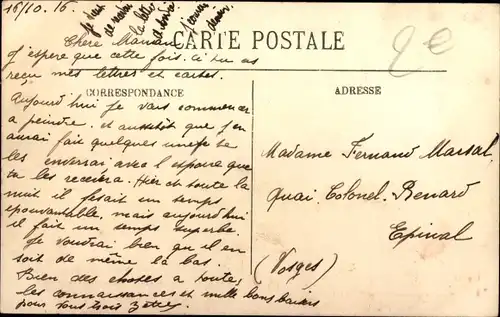 15/10. 16
Je suis
de
la lettre
CARTE POSTALE
2€
Chère Maman
J'espère que cette fois. ci tu as
reçu mes lettres et cartes.
CORRESPONDANCE
Aujourd'hui je vais commencer
a peindre. et aussitôt que j'en
aurai fait quelques unes je te
les enverrai avec l'espoire que
tu les recevra. Hier de toute la
nuit il fesait un temps
épouvantable, mais aujourd'hui
il fait un temps superbe.
Je voudrai bien qu il en
soit de même là bas.
Bien des choses a toute,
les connaissances et mille bons baisers
pour vous trois
ADRESSE
Madame Fernand Marsal,
Quai. Colonel. Renard
Epinal
(Vosges)